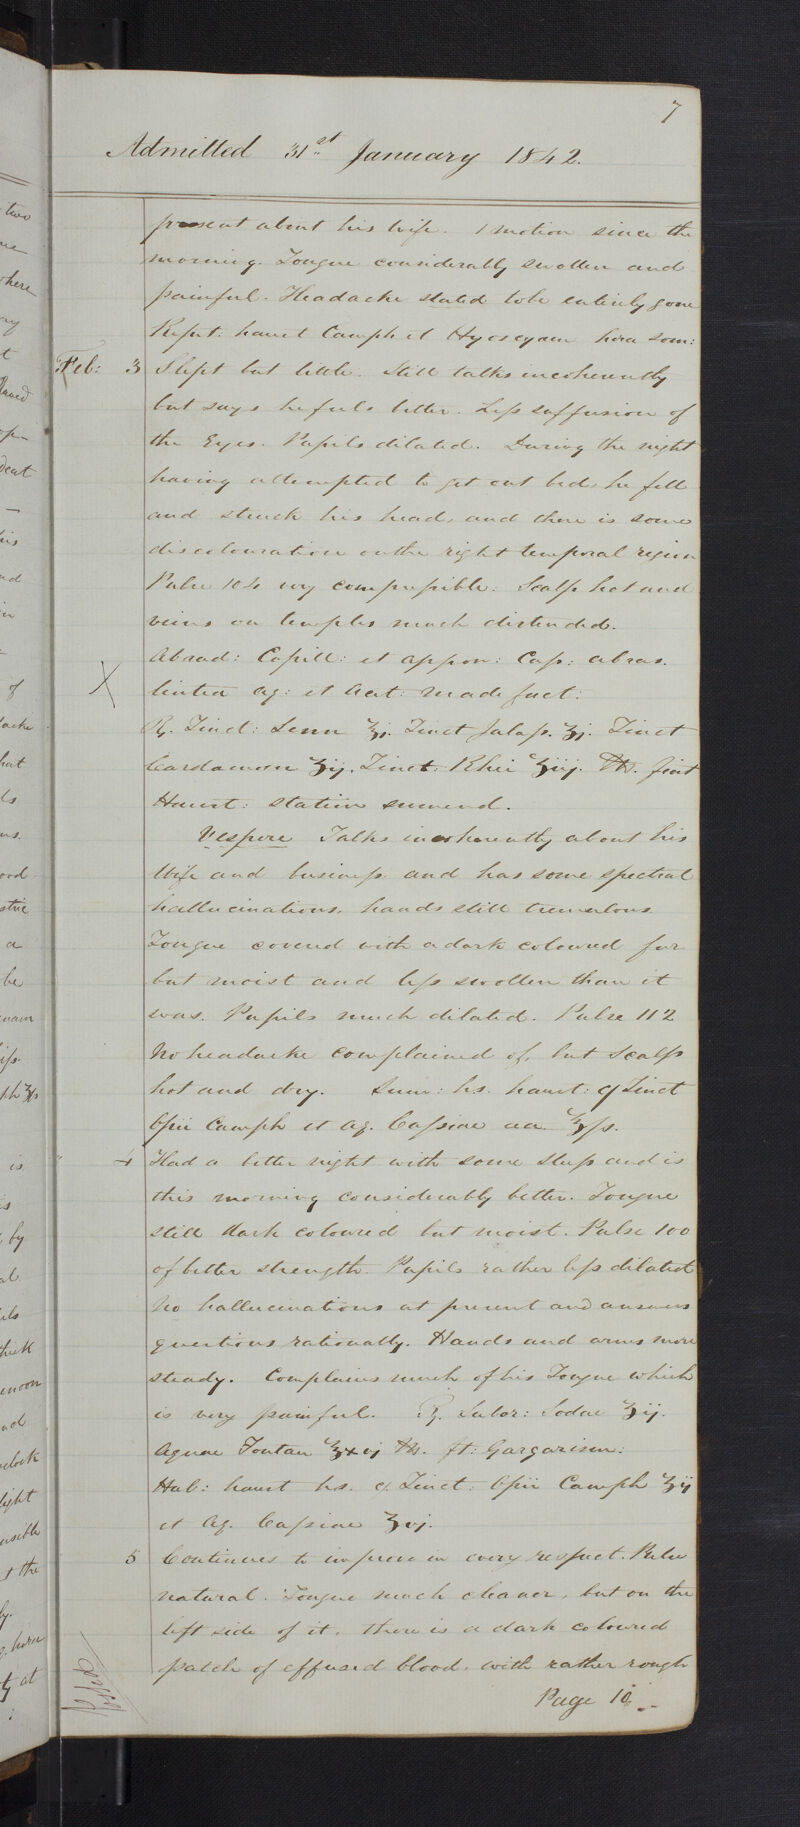 7
Admitted 31st January 1842.
present about his wife. 1 motion since the
morning. Tongue considerably swollen and
painful. Headache stated to be entirely gone
Repet: haust Camph et Hyoscyam hora som:
Feb: 3 Slept but little. Still talks incoherently
but says he feels better. Less suffusion of
the Eyes. Pupils dilated. During the night
having attempted to get out bed, he fell
and struck his head, and there is some
discolouration on the right temporal region
Pulse 104 very compressible. Scalp hot and
veins on temples much distended.
Abrad: Capill: et appon: Cap: abras.
X lintea aq: et Acet: madefact:
℞. Tinct: Senn ʒj. Tinct Jalap. ʒj. Tinct
Cardamom ʒij. Tinct. Rhei ʒiij. M. fiat
Haust: statim sumend.
Vespere Talks incoherently about his
Wife and business and has some spectral
hallucinations, hands still tremulous.
Tongue covered with a dark coloured fur
but moist and less swollen than it
was. Pupils much dilated. Pulse 112
No headache complained of, but Scalp
hot and dry. Sum: hs. haust: c Tinct
Opii Camph et aq. Cassiae aa ℥ss.
" 4 Had a better night with some sleep and is
this morning considerably better. Tongue
still dark coloured but moist. Pulse 100
of better strength. Pupils rather less dilated
No hallucinations at present and answers
questions rationally. Hands and arms more
steady. Complains much of his Tongue which
is very painful. ℞. Subor: Sodae ʒij.
Aquae Fontan ℥xvj M. ft: Gargarism:
Hab: haust hs. c. Tinct: Opii Camph ʒij
et Aq. Cassiae ʒvj.
5 Continues to improve in every respect. Pulse
natural. Tongue much cleaner, but on the
left side of it, there is a dark coloured
patch of effused blood, with rather rough
Page 10